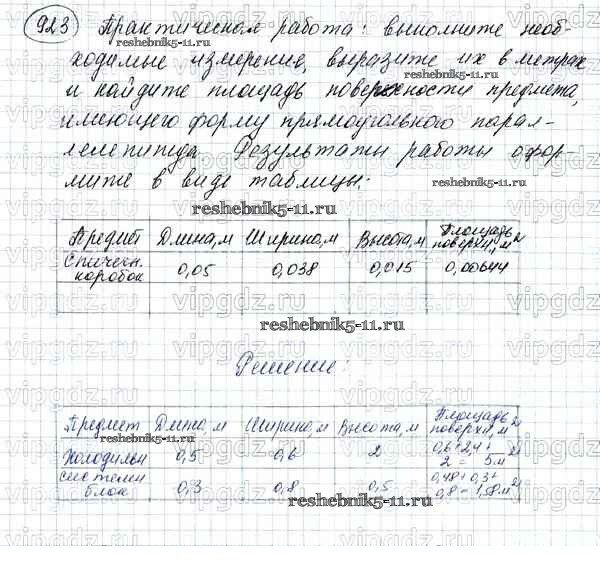 923 Практическая работа: выполните необ-
ходимые измерение, выразите их в метрах
и найдите площадь поверхности предмета,
имеющего форму прямоугольного парал-
лелепипеда. Результаты работы офор-
мите в виде таблицы:
reshebnik5-11.ru
Предмет Длина,м Ширина,м Высота,м Площадь поверхн, м²
Спичечн. коробок 0,05 0,038 0,015 0,00644
reshebnik5-11.ru
Решение:
Предмет Длина,м Ширина,м Высота,м Площадь поверхн, м²
Холодильн 0,5 0,6 2 0,6+2,4+2 = 5м²
системн блок 0,3 0,8 0,5 0,48+0,3+0,8 = 1,58м²
reshebnik5-11.ru